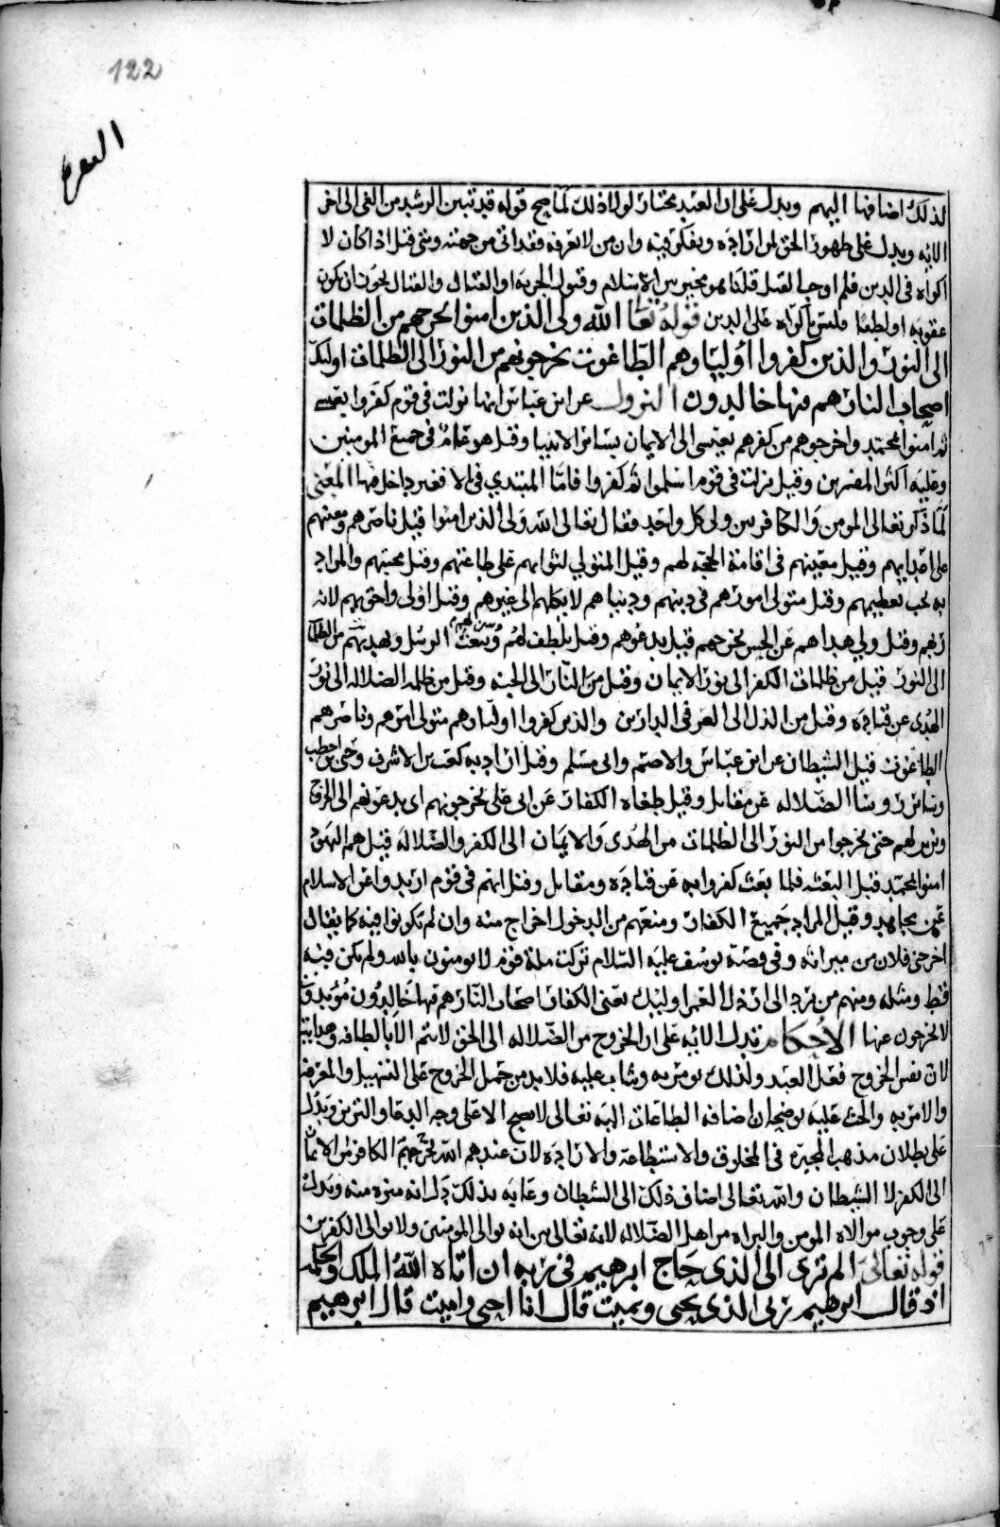 122
البقرة
لذلك اضافها اليهم ويدل على ان العبد مختار لولا ذلك لما صح قوله قد تبين الرشد من الغي الى اخر
الايه ويدل على ظهور الحق لمن اراده وتفكر فيه وان من لا يعرفه فقد اتى من جهته ومتى قيل اذا كان لا
اكراه في الدين فلم اوجب القتل قلنا هو مخير بين الاسلام وقبول الجزيه او القتال والقتال يجوز ان يكون
عقوبه او لطفا وليس باكراه على الدين قوله تعا الله ولي الذين امنوا يخرجهم من الظلمات
الى النور والذين كفروا اوليا وهم الطاغوت يخرجونهم من النور الى الظلمات اوليك
اصحاب النار هم فيها خالدون النزول عن ابن عباس انها نزلت في قوم كفروا بعيسى
ثم امنوا بمحمد واخرجوهم من كفرهم بعيسى الى الايمان بسائر الانبيا وقيل هو عام في جميع المومنين
وعليه اكثر المفسرين وقيل نزلت في قوم اسلموا ثم كفروا فاما المبتدي في الا فغير داخل فيها المعنى
لما ذكر تعالى المومن والكافرين وولي كل واحد فقال تعالى الله ولي الذين امنوا قيل ناصرهم ومعينهم
على اعدايهم وقيل معينهم في اقامة الحجه لهم وقيل المتولي لثوابهم على طاعتهم وقيل محبتهم والمراد
به يحب تعظيمهم وقيل متولي امورهم في دينهم ودنياهم لا يكلهم الى غيرهم وقيل اولى واحق بهم لانه
ربهم وقيل ولي هداهم عن الحسن يخرجهم قيل يدعوهم وقيل يلطف لهم ويبعث اليهم الرسل ويهديهم من الظلمات
الى النور قيل من ظلمات الكفر الى نور الايمان وقيل من النار الى الجنه وقيل من ظلمه الضلاله الى نور
الهدى عن قتاده وقيل من الذل الى العز في الدارين والذين كفروا اولياوهم متولي امرهم وناصرهم
الطاغوت قيل الشيطان عن ابن عباس والاصم وابي مسلم وقيل اراد به كعب بن الاشرف وحيي بن اخطب
وسائر روسا الضلاله عن مقاتل وقيل طغاه الكفار عن ابي علي يخرجونهم اي يدعونهم الى الخروج
ويزين لهم حتى يخرجوا من النور الى الظلمات من الهدى والايمان الى الكفر والضلاله قيل هم اليهود
امنوا بمحمد قبل البعثه فلما بعث كفروا به عن قتاده ومقاتل وقيل انهم في قوم ارتدوا عن الاسلام
عن مجاهد وقيل المراد جميع الكفار ومنعهم من الدخول اخراج منه وان لم يكونوا فيه كما يقال
اخرجني فلان من ميراثه وفي قصة يوسف عليه السلام تركت ملة قوم لا يومنون بالله ولم يكن فيه
قط ومثله ومنهم من يرد الى ارذل العمر اوليك يعني الكفار اصحاب النار هم فيها خالدون مويدون
لا يخرجون عنها الاحكام تدل الايه على ان الخروج من الضلاله الى الحق لا يتم الا بالطافه وهدايته
لان نفس الخروج فعل العبد ولذلك يومر به ويثاب عليه فلا بد من حمل الخروج على التسهيل والمعرفه
والامر به والحث عليه يوضحه ان اضافه الطاعات اليه تعالى لا يصح الا على وجه الدعا والتزيين ويدل
على بطلان مذهب المجبره في المخلوق والاستطاعه والاراده لان عندهم الله يخرجهم الكافر من الايمان
الى الكفر لا الشيطان والله تعالى اضاف ذلك الى الشيطان وعابه بذلك دل انه منزه منه ويدل
على وجوب موالاه المومن والبراه من اهل الضلاله لانه تعالى بين انه يوالي المومنين ولا يوالي الكفرين
قوله تعالى الم تر الى الذي حاج ابرهيم في ربه ان اتاه الله الملك والحكمه
اذ قال ابرهيم ربي الذي يحيي ويميت قال انا احيي واميت قال ابرهيم